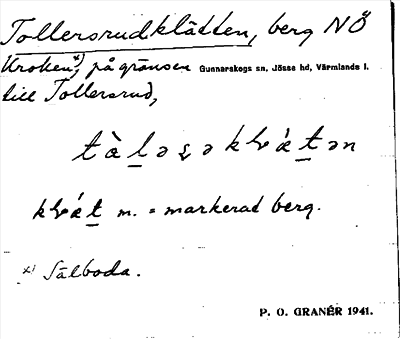 Tollersrudklätten, berg NÖ
Kroken, *) på gränsen Gunnarskogs sn, Jösse hd, Värmlands l.
till Tollersrud,
klv́ät m. = markerad berg.
*) Sälboda.
P. O. GRANÉR 1941.